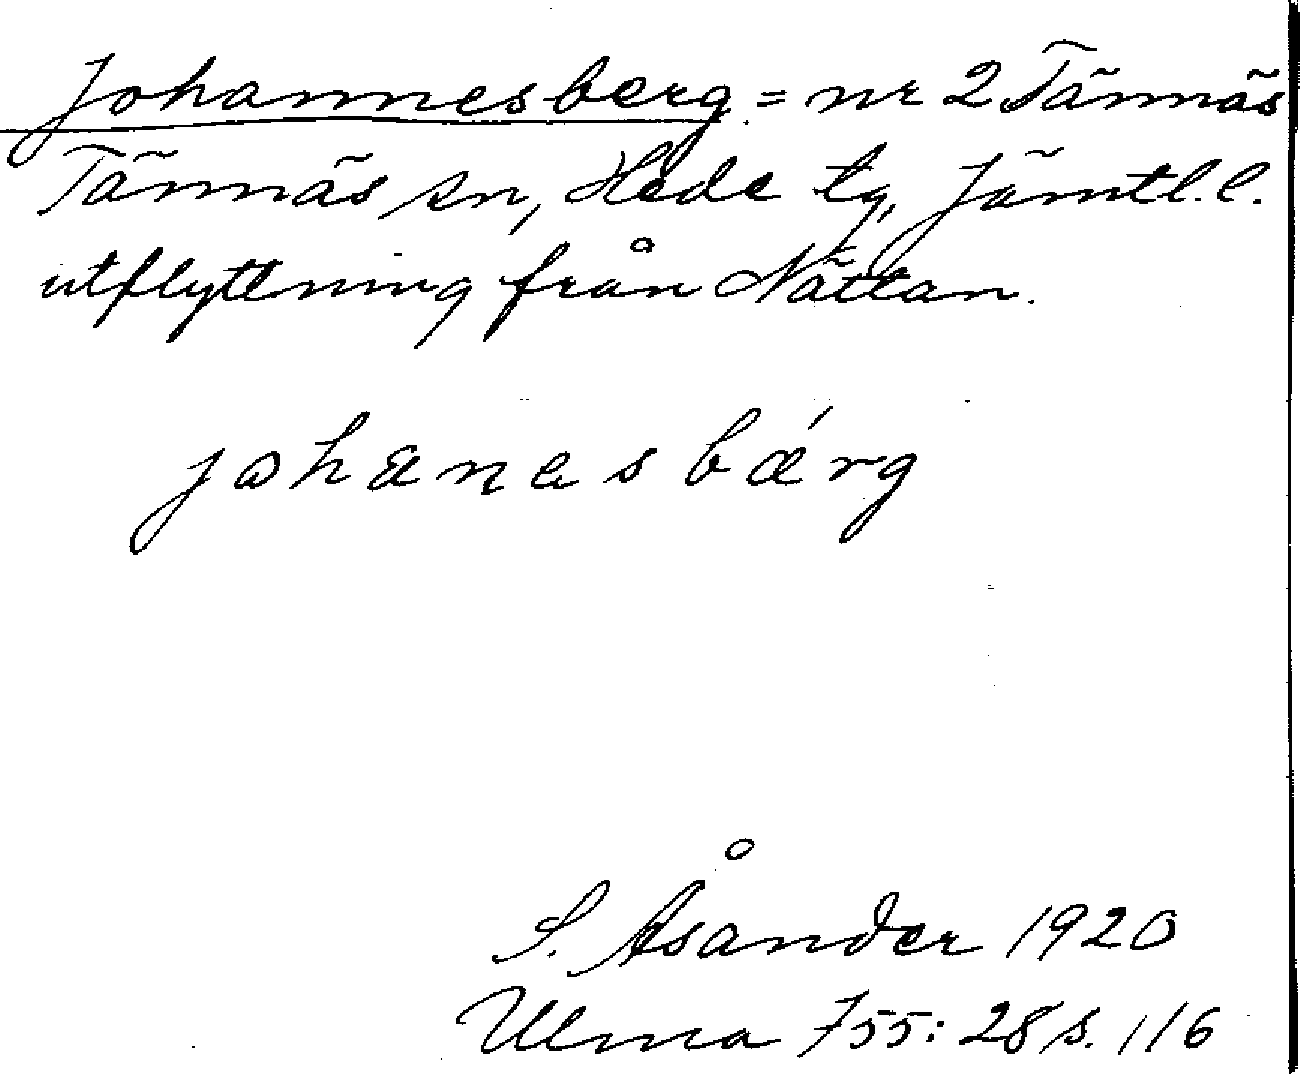 Johannesberg = nr 2 Tännäs
Tännäs sn, Hede tg, Jämtl. l.
utflyttning från Nättan.
johanesbǽrg
S. Åsander 1920
Ulma 755: 28 s. 116